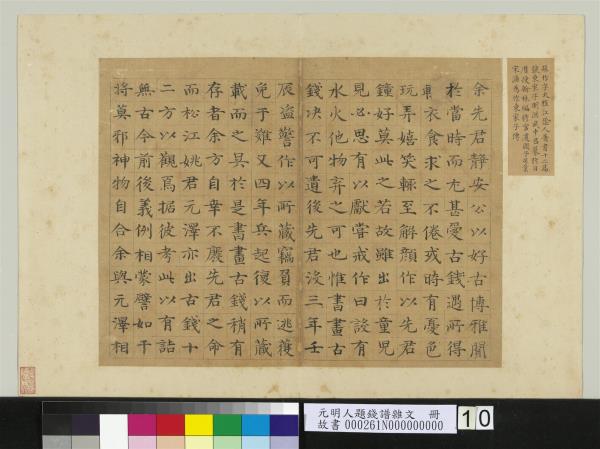 孫作字大雅江陰人著書十二篇
號東家子明洪武中召纂修日
曆授翰林編修官遷國子司業
宋濂為作東家子傳
余先君靜安公以好古博雅聞
於當時而尤甚愛古錢遇所得
衣食求之不倦或時有憂色
玩弄嬉笑輒至解顏作以先君
鐘好莫此之若故雖出於童兒
見必思有以獻嘗戒作曰設有
水火他物棄之可也惟書畫古
錢決不可遺後先君沒三年壬
辰盜警作以所藏竊負而逃獲
免于難又四年兵起復以所藏
載而之吳於是書畫古錢稍有
存者余方自幸不廢先君之命
而松江姚君元澤亦出古錢十
二方以觀焉據彼考此以有詰
無古今前後義例相蒙譬如干
將莫邪神物自合余與元澤相
元明人題錢譜雜文 冊
故書 000261N000000000
10